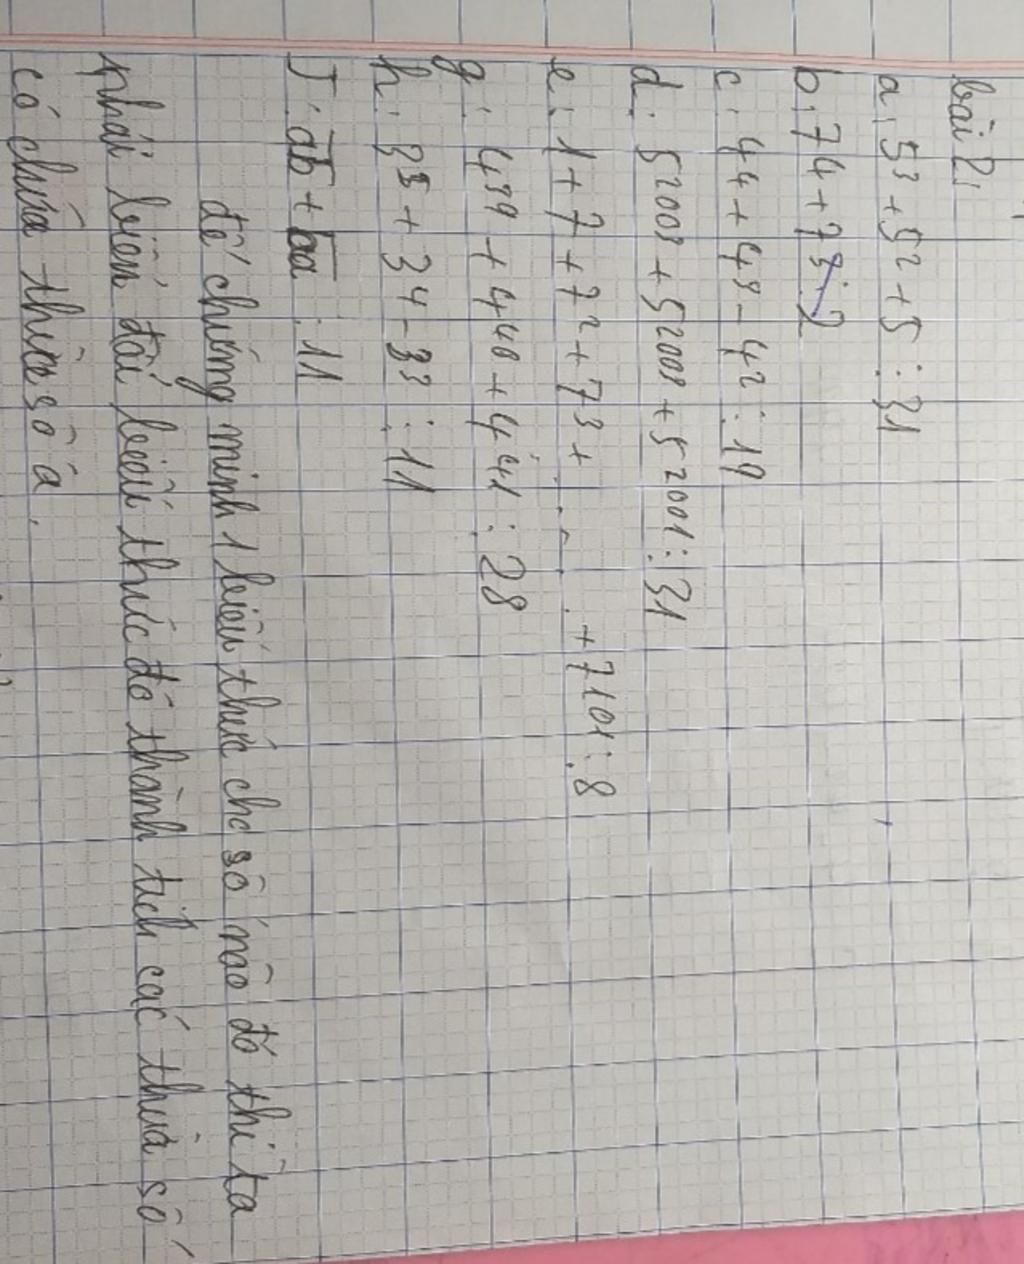 bài 2:
a, 5³ + 5² + 5 ⋮ 31
b, 7⁴ + 7³ ⋮ 2
c. 4⁴ + 4³ - 4² ⋮ 19
d. 5²⁰⁰³ + 5²⁰⁰³ + 5²⁰⁰¹ ⋮ 31
e. 1 + 7 + 7² + 7³ + ... + 7¹⁰¹ ⋮ 8
g. 4³⁹ + 4⁴⁰ + 4⁴¹ ⋮ 28
h. 3⁵ + 3⁴ - 3³ ⋮ 11
I. ab + ba ⋮ 11
để chứng minh 1 biểu thức cho số nào đó thì ta
phải biến đổi biểu thức đó thành tích các thừa số
có chứa thừa số a.